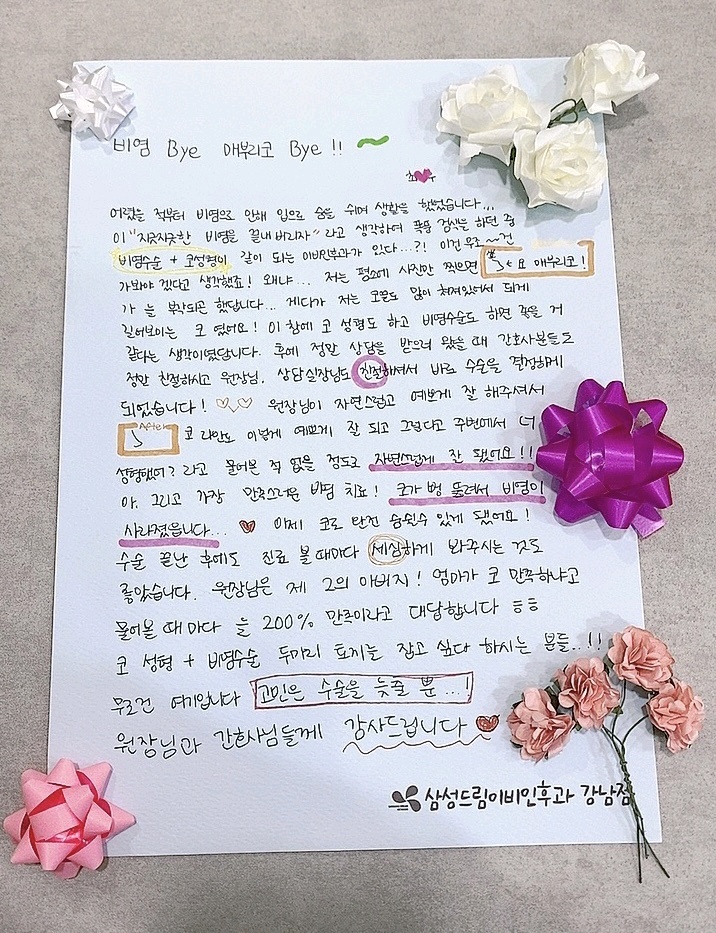 비염 Bye 매부리코 Bye !!
최♥수
어렸을 적부터 비염으로 인해 입으로 숨을 쉬며 생활을 했었습니다...
이 "지긋지긋한 비염을 끝내버리자" 라고 생각하여 폭풍 검색을 하던 중
비염수술 + 코성형이 같이 되는 이비인후과가 있다...?! 이건 무조~~건
가봐야 겠다고 생각했죠! 왜냐... 저는 평소에 사진만 찍으면 요 매부리코!
가 늘 부각되곤 했답니다... 게다가 저는 코끝도 많이 쳐져있어서 되게
길어보이는 코 였어요! 이 참에 코 성형도 하고 비염수술도 하면 좋을 거
같다는 생각이었답니다. 후에 정만 상담을 받으러 왔을 때 간호사분들도
정만 친절하시고 원장님, 상담실장님도 친절하셔서 바로 수술을 결정하게
되었습니다! ♡♡ 원장님이 자연스럽고 예쁘게 잘 해주셔서
After 코 라인도 이렇게 예쁘게 잘 되고 그렇다고 주변에서 너
성형했어? 라고 물어본 적 없을 정도로 자연스럽게 잘 됐어요!!
아. 그리고 가장 만족스러운 비염 치료! 코가 뻥 뚫려서 비염이
사라졌습니다... ♥ 이제 코로 완전 숨쉴수 있게 됐어요!
수술 끝난 후에도 진료 볼 때마다 세심하게 봐주시는 것도
좋았습니다. 원장님은 제 2의 아버지! 엄마가 코 만족하냐고
물어볼 때 마다 늘 200% 만족이라고 대답합니다 ㅎㅎ
코 성형 + 비염수술 두마리 토끼를 잡고 싶다 하시는 분들...!!
무조건 여기입니다 고민은 수술을 늦출 뿐...!
원장님과 간호사님들께 감사드립니다 ♥
삼성드림이비인후과 강남점